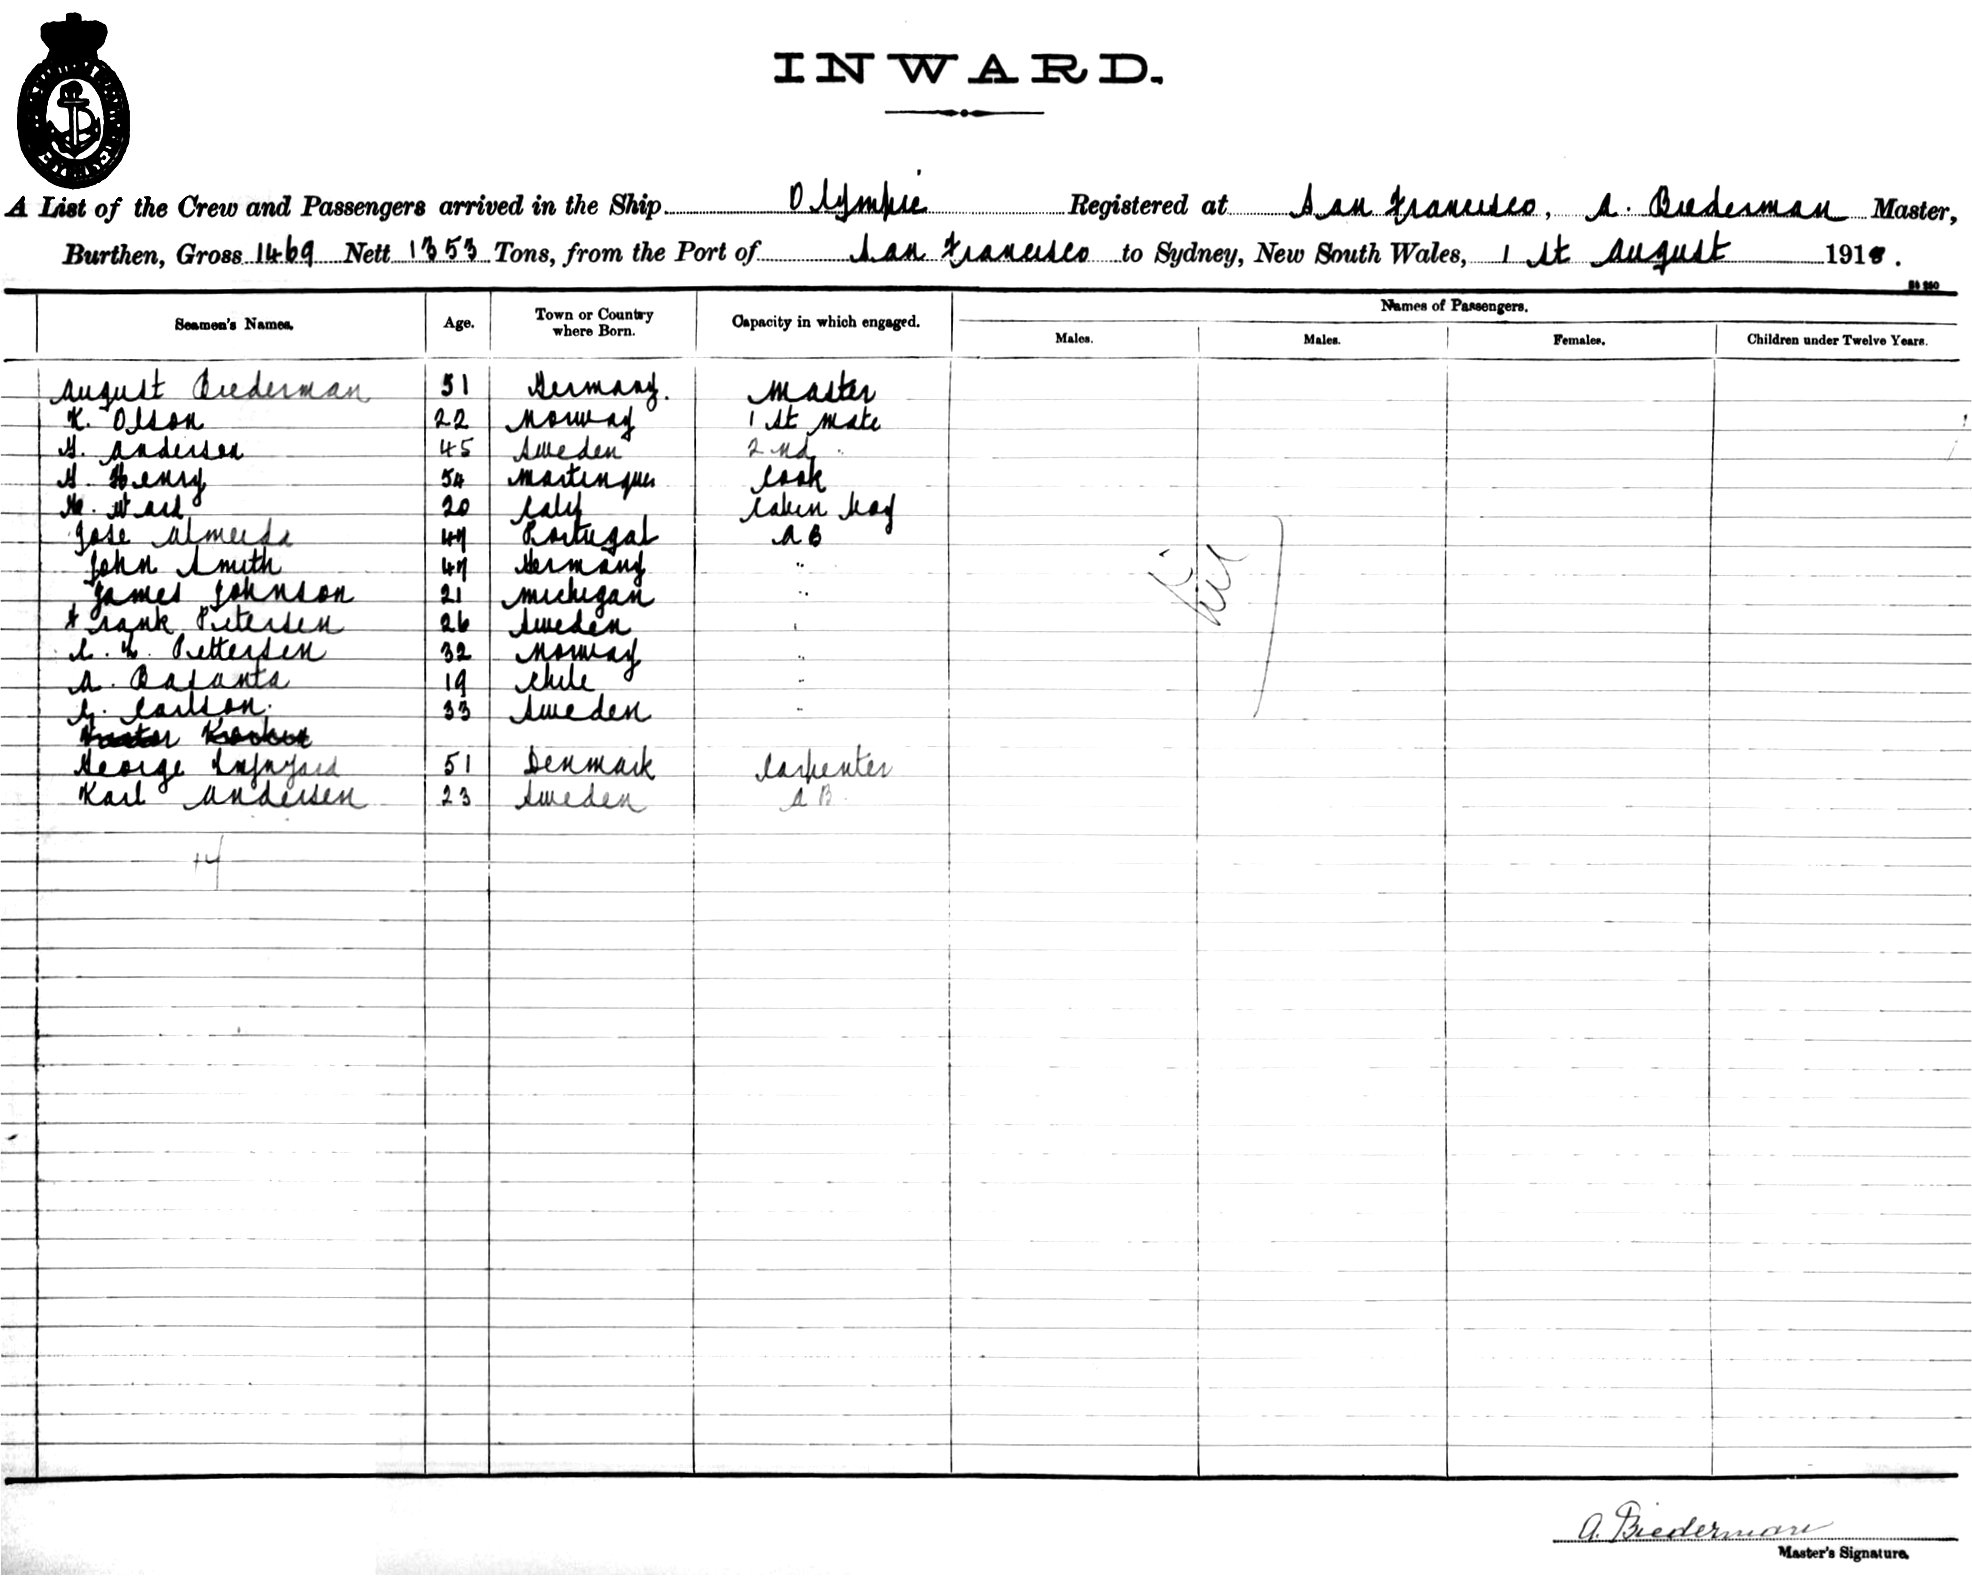 INWARD.
A List of the Crew and Passengers arrived in the Ship Olympic Registered at San Francisco, A. Biederman Master,
Burthen, Gross 1469 Nett 1353 Tons, from the Port of San Francisco to Sydney, New South Wales, 1 St August 191
Names of Passengers.
Seamen's Names. Age. Town or Country where Born. Capacity in which engaged. Males. Males. Females. Children under Twelve Years.
August Biederman 51 Germany. Master
K. Olson 22 Norway 1 St Mate
Andersen 45 Sweden 2nd "
Henry 54 Cook
Ward 20 Caly Cabin boy
Jose Almeida 47 Portugal A B
John Smith 47 Germany "
James Johnson 21 Michigan "
Frank Petersen 26 Sweden "
Pettersen 32 Norway "
A. Basanta 19 Chile "
Carlson. 33 Sweden "
George 51 Denmark Carpenter
Karl Andersen 23 Sweden A B
14
Nil
A. Biederman
Master's Signature.